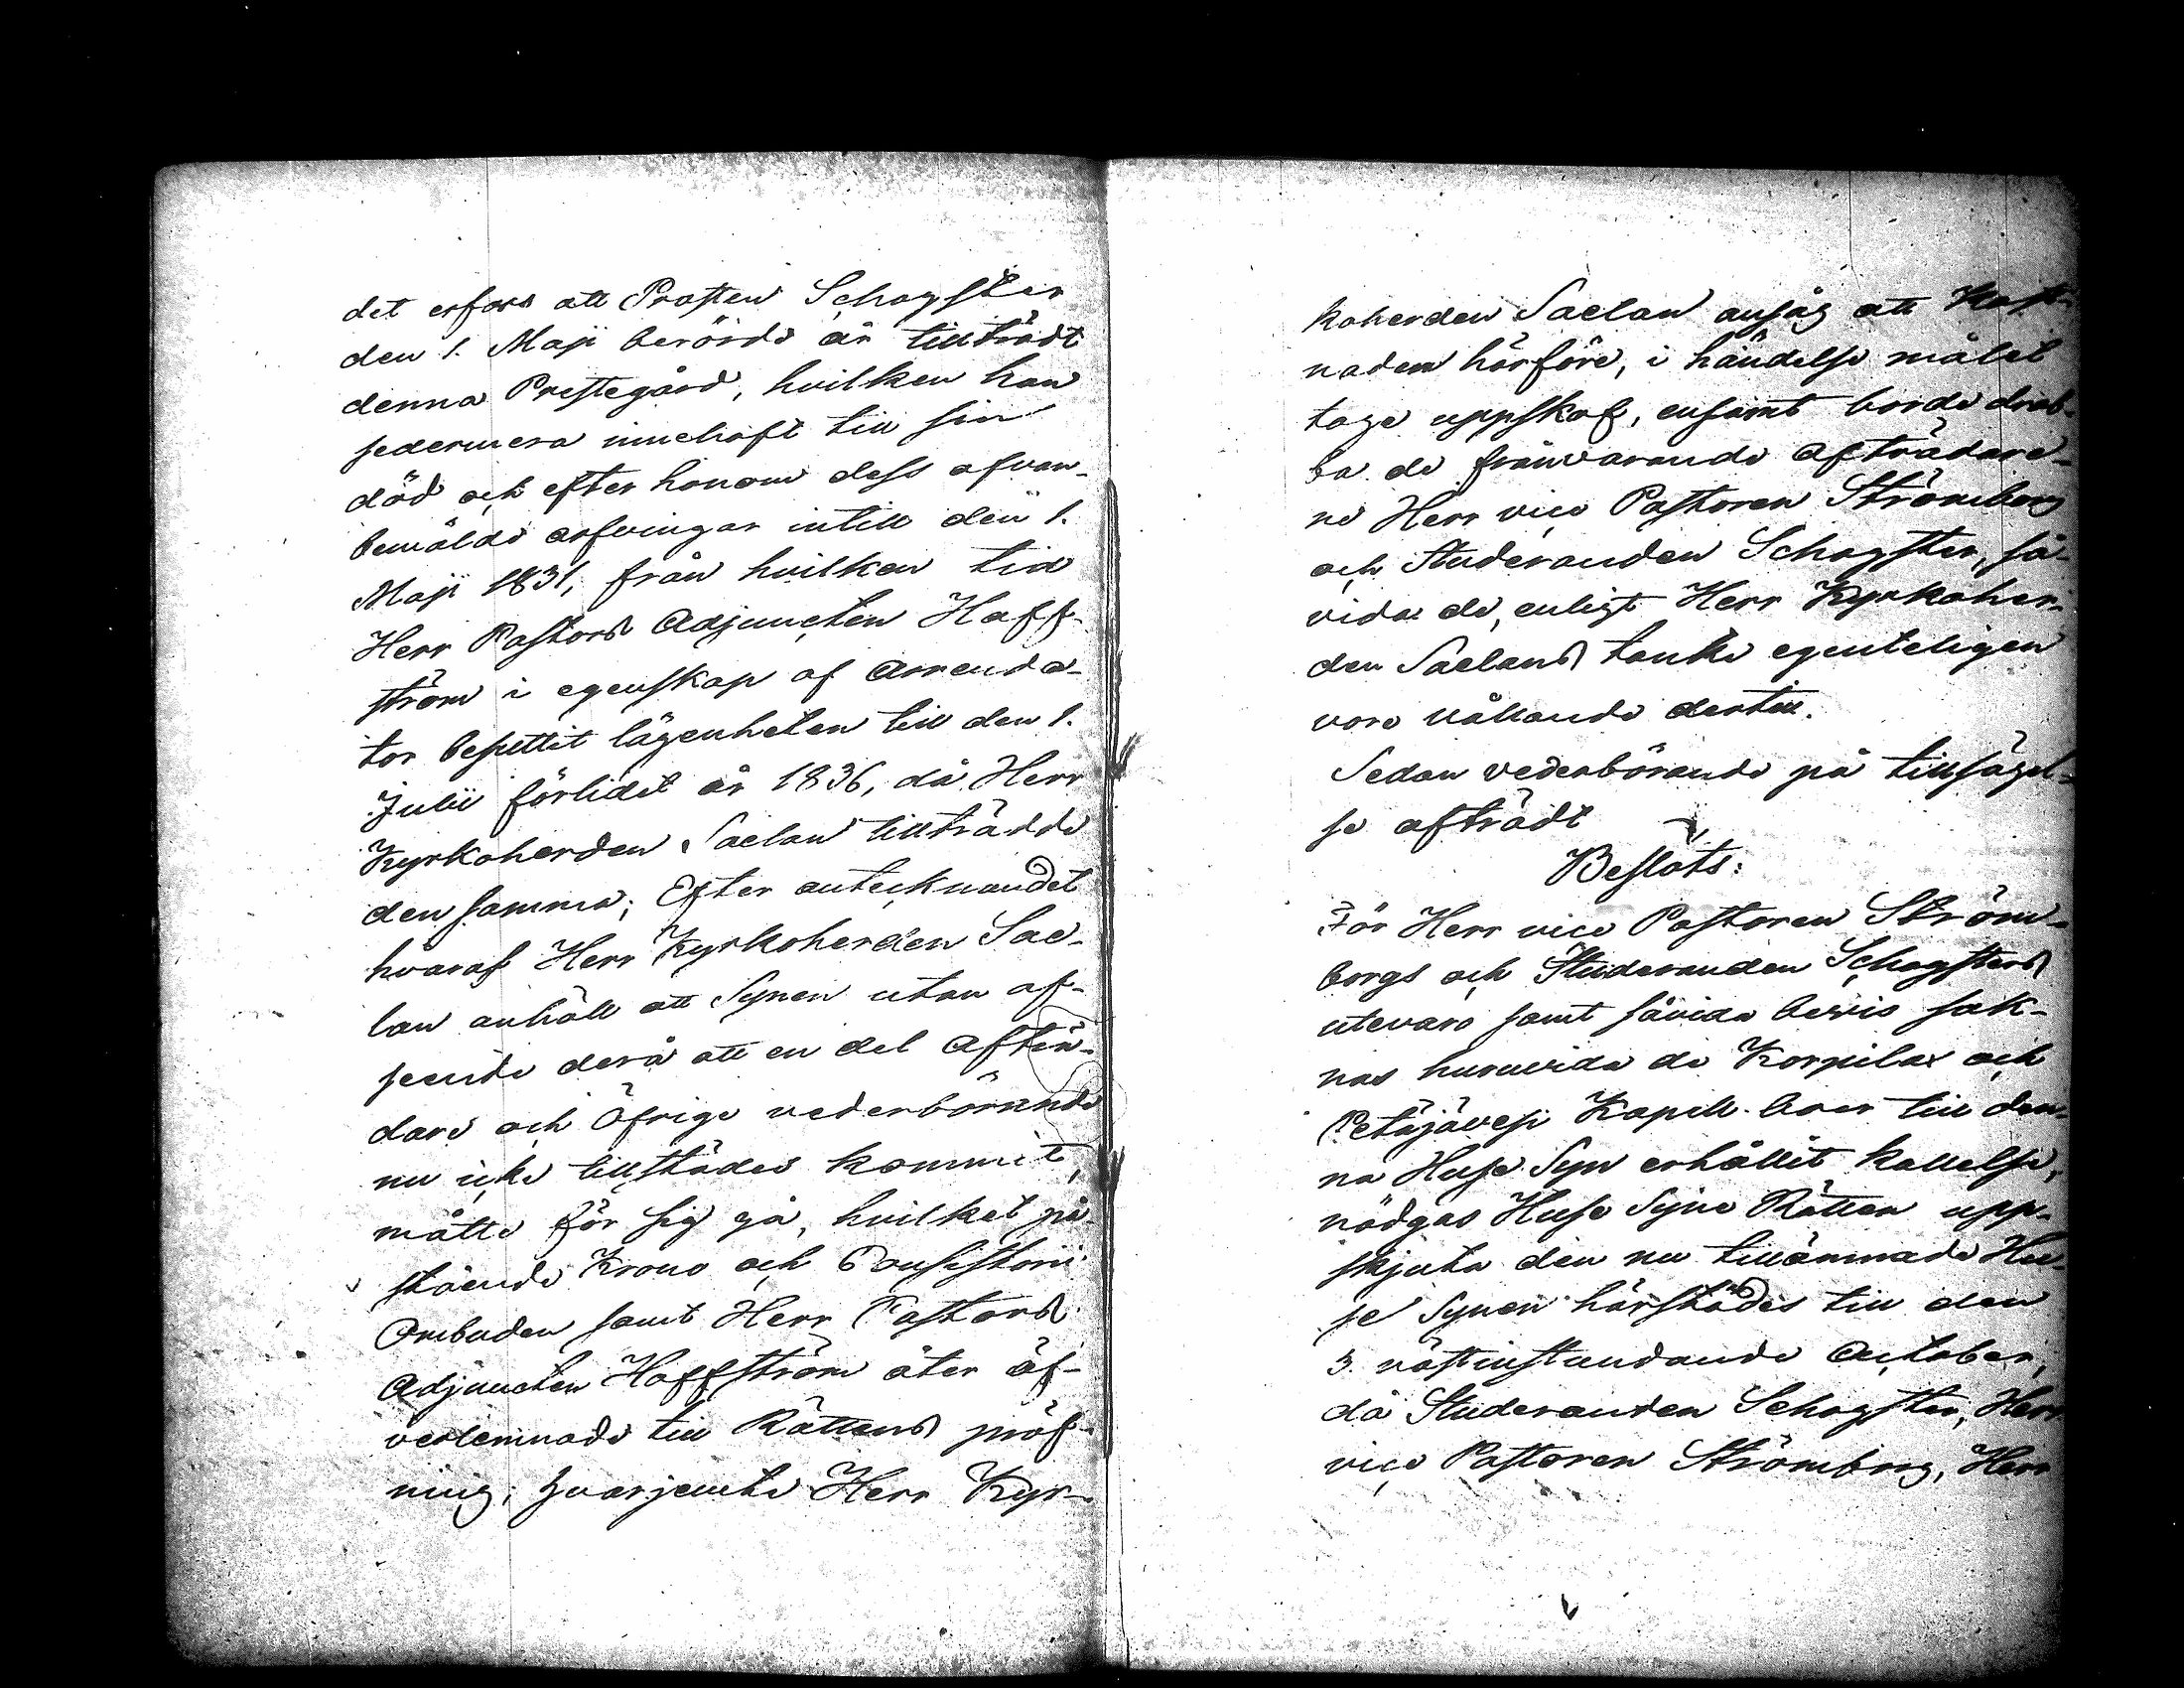 det erfors att Prosten Schogster
den 1. Maji berörde år tillträdt
denna Prestegård, hvilken han
sedermera innehaft till sin
död och efter honom dess ofvan-
bemälde arfvingar intill den 1.
Maji 1831, från hvilken tid
Herr Pastors Adjuncten Haff-
ström i egenskap af Arrenda-
tor besuttit lägenheten till den 1.
Julii förlidet år 1836, då Herr
Kyrkoherden Saelan tillträdde
densamma; Efter antecknandet
hvaraf Herr Kyrkoherden Sae-
lan anhöll att Synen utan af-
seende derå att en del Afträ-
dare och Öfrige vederbörande
nu icke tillstädes kommit,
måtte för sig gå, hvilket på-
stående Krono och Consistorii
Ombuden samt Herr Pastors
Adjuncten Haffström åter öf-
verlemnade till Rättens pröf-
ning; hvarjemte Herr Kyr-
koherden Saelan ansåg att Kost-
naden härföre, i händelse målet
toge uppskof, ensamt borde drab-
ba de frånvarande Afträdare-
ne Herr vice Pastoren Strömborg
och Studeranden Schogster, så-
vida de, enligt Herr Kyrkoher-
den Saelans tanke egenteligen
vore vållande dertill.
Sedan vederbörande på tillsägel-
se afträdt
Beslöts:
För Herr vice Pastoren Ström-
borgs och Studeranden Schogsters
utevaro samt såvida bevis sak-
nas huruvida de Korpilax och
Petäjävesi Kapell boer till den-
na Huse Syn erhållit kallelse,
nödgas Huse Syne Rätten upp-
skjuta den nu tillämnade Hu-
se Synen härstädes till den
3. nästinstundande October,
då Studeranden Schogster, Herr
vice Pastoren Strömborg, Herr